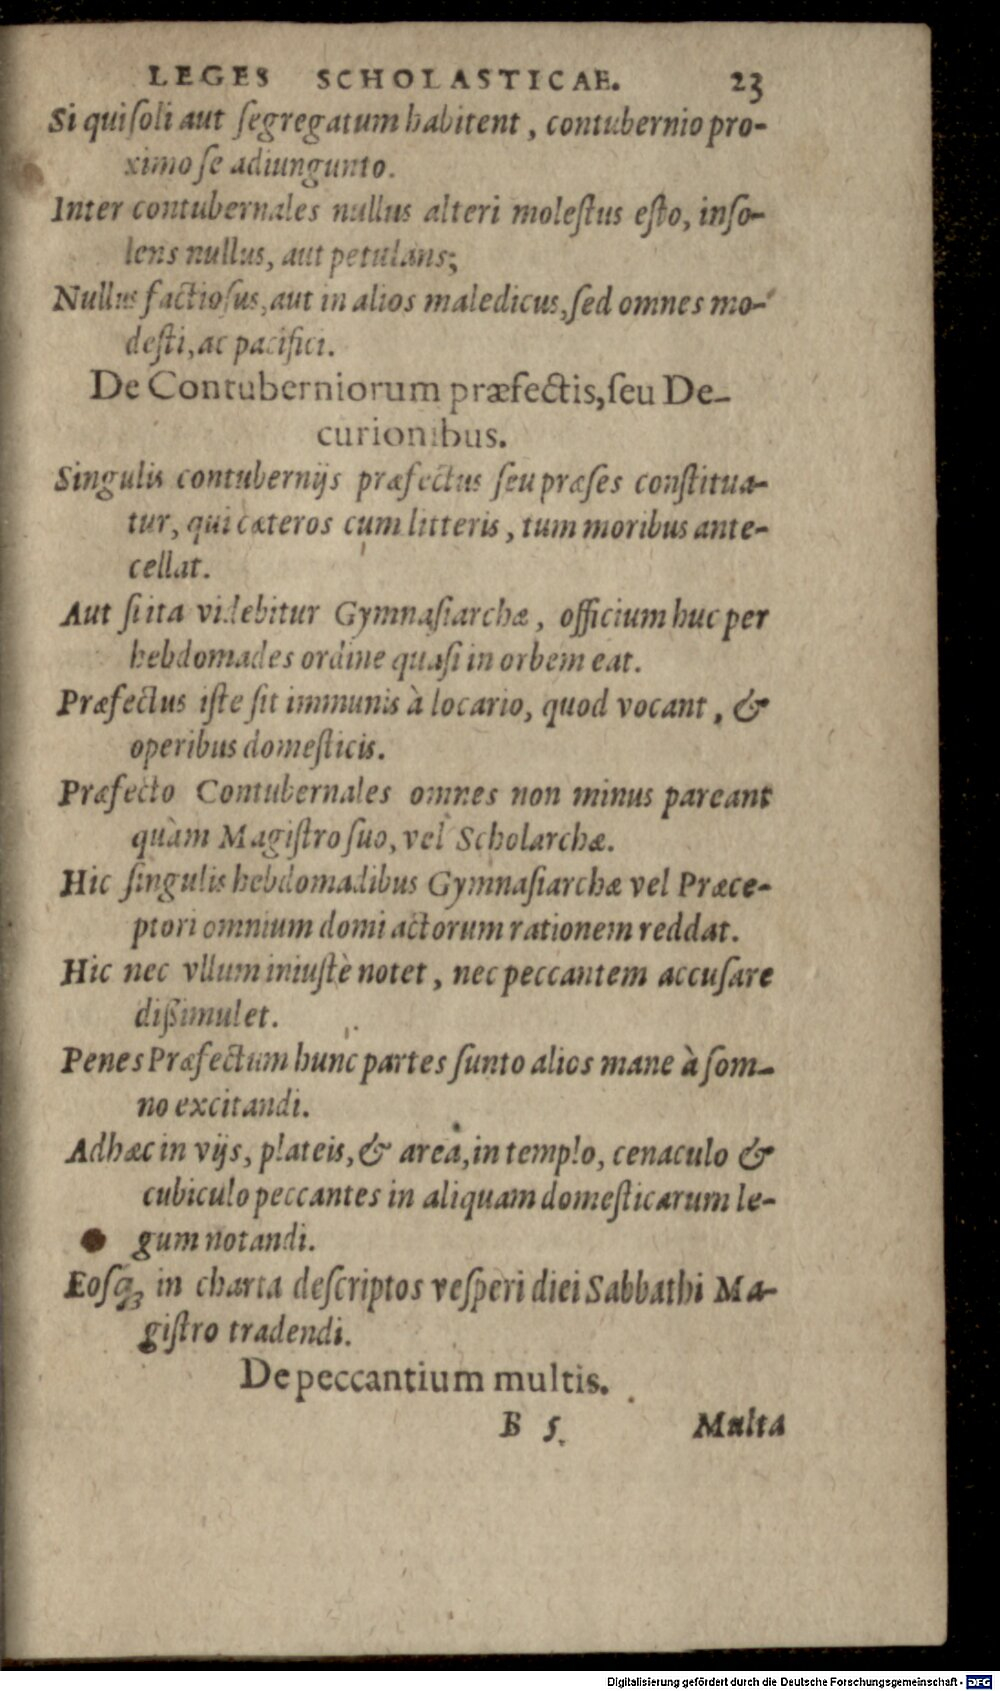 LEGES SCHOLASTICAE. 23
Si qui ſoli aut ſegregatum habitent, contubernio pro-
ximo ſe adiungunto.
Inter contubernales nullus alteri moleſtus eſto, inſo-
lens nullus, aut petulans;
Nullus factioſus, aut in alios maledicus, ſed omnes mo-
deſti, ac pacifici.
De Contuberniorum præfectis, ſeu De-
curionibus.
Singulis contubernijs præfectus ſeu præſes conſtitua-
tur, qui cæteros cum litteris, tum moribus ante-
cellat.
Aut ſi ita videbitur Gymnaſiarchæ, officium huc per
hebdomades ordine quaſi in orbem eat.
Præfectus iſte ſit immunis à locario, quod vocant, &
operibus domeſticis.
Præfecto Contubernales omnes non minus pareant
quàm Magiſtro ſuo, vel Scholarchæ.
Hic ſingulis hebdomadibus Gymnaſiarchæ vel Præce-
ptori omnium domi actorum rationem reddat.
Hic nec vllum iniuſtè notet, nec peccantem accuſare
dißimulet.
Penes Præfectum hunc partes ſunto alios mane à ſom-
no excitandi.
Adhæc in vijs, plateis, & area, in templo, cenaculo &
cubiculo peccantes in aliquam domeſticarum le-
gum notandi.
Eoſq; in charta deſcriptos veſperi diei Sabbathi Ma-
giſtro tradendi.
De peccantium multis.
B 5. Multa
Digitalisierung gefördert durch die Deutsche Forschungsgemeinschaft - DFG